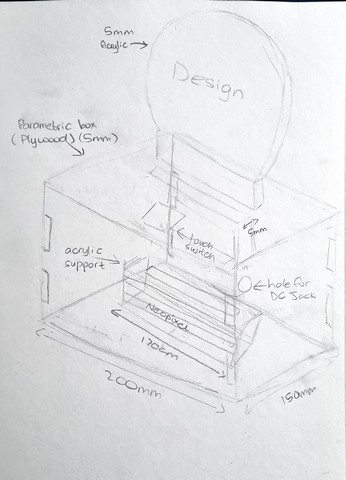 5mm
Acrylic
Design
Parametric box
(Plywoood) (5mm)
touch
switch
acrylic
support
hole for
DC Jack
Neopixel
170cm
200mm
150mm